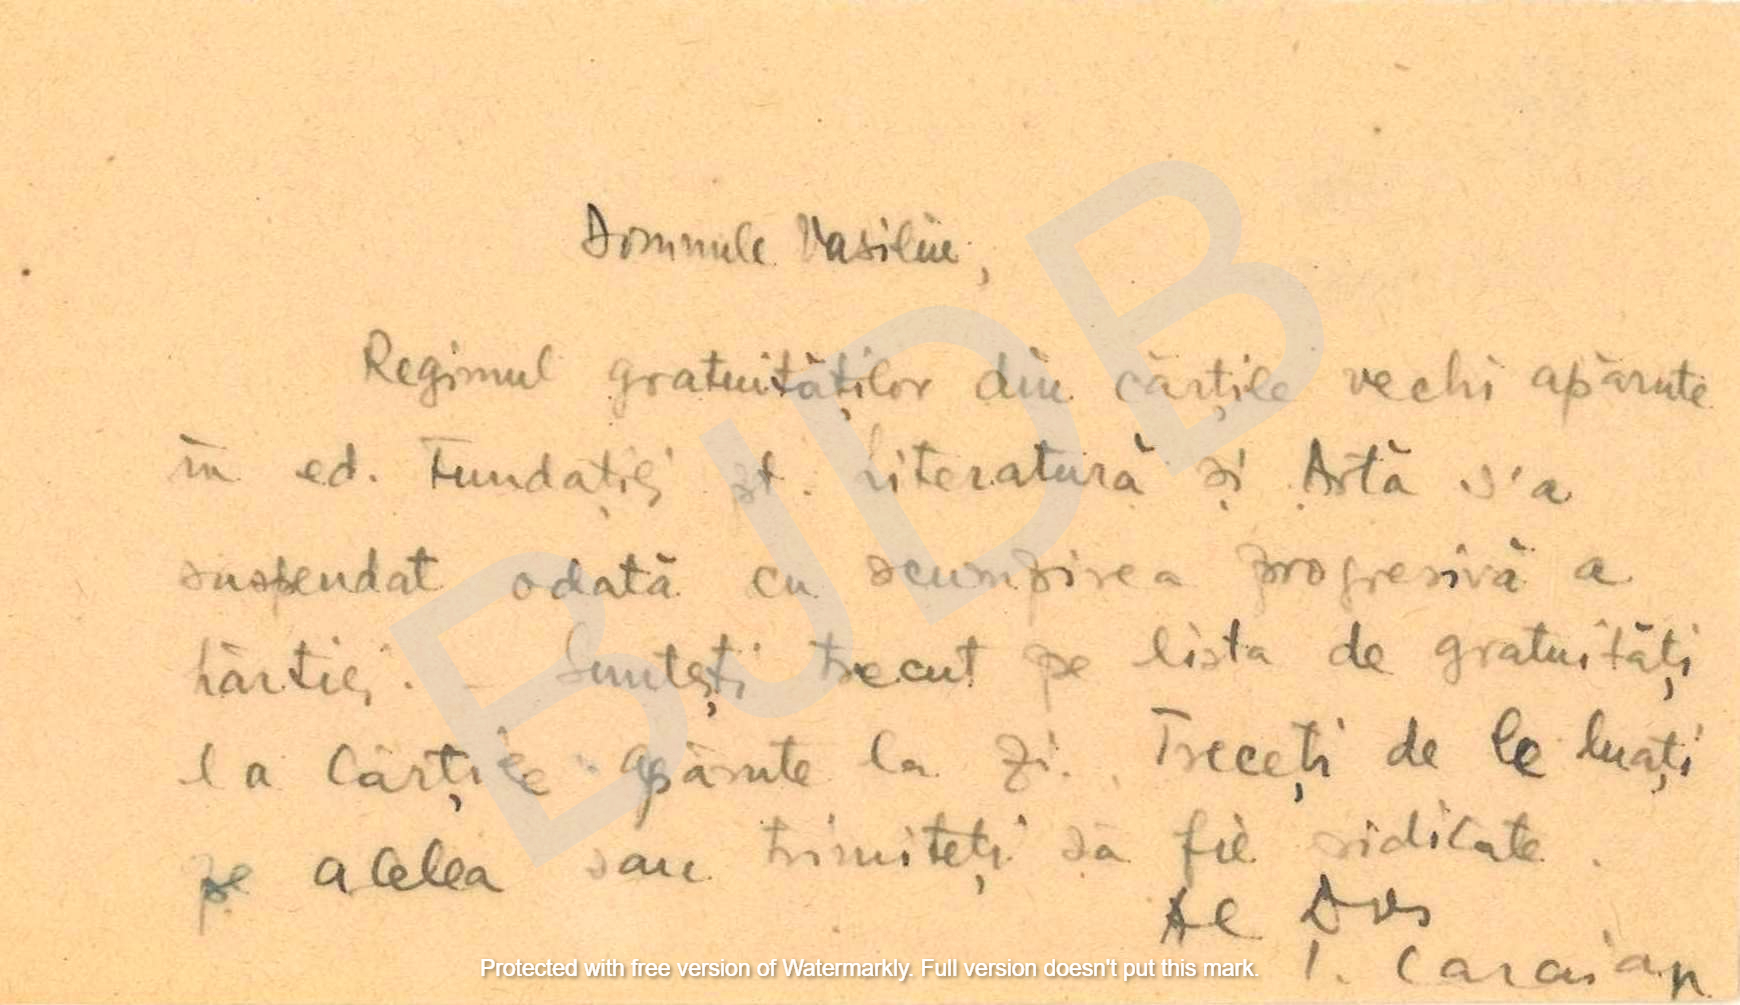 Domnule Vasiliu,
Regimul gratuităților din cărțile vechi apărute
în ed. Fundației pt. Literatură și Artă s'a
suspendat odată cu scumpirea progresivă a
hârtiei. – Sunteți trecut pe lista de gratuități
la cărțile apărute la zi. Treceți de le luați
pe acelea sau trimiteți să fie ridicate.
Al Dvs
I. Caraian
BJDB
Protected with free version of Watermarkly. Full version doesn't put this mark.